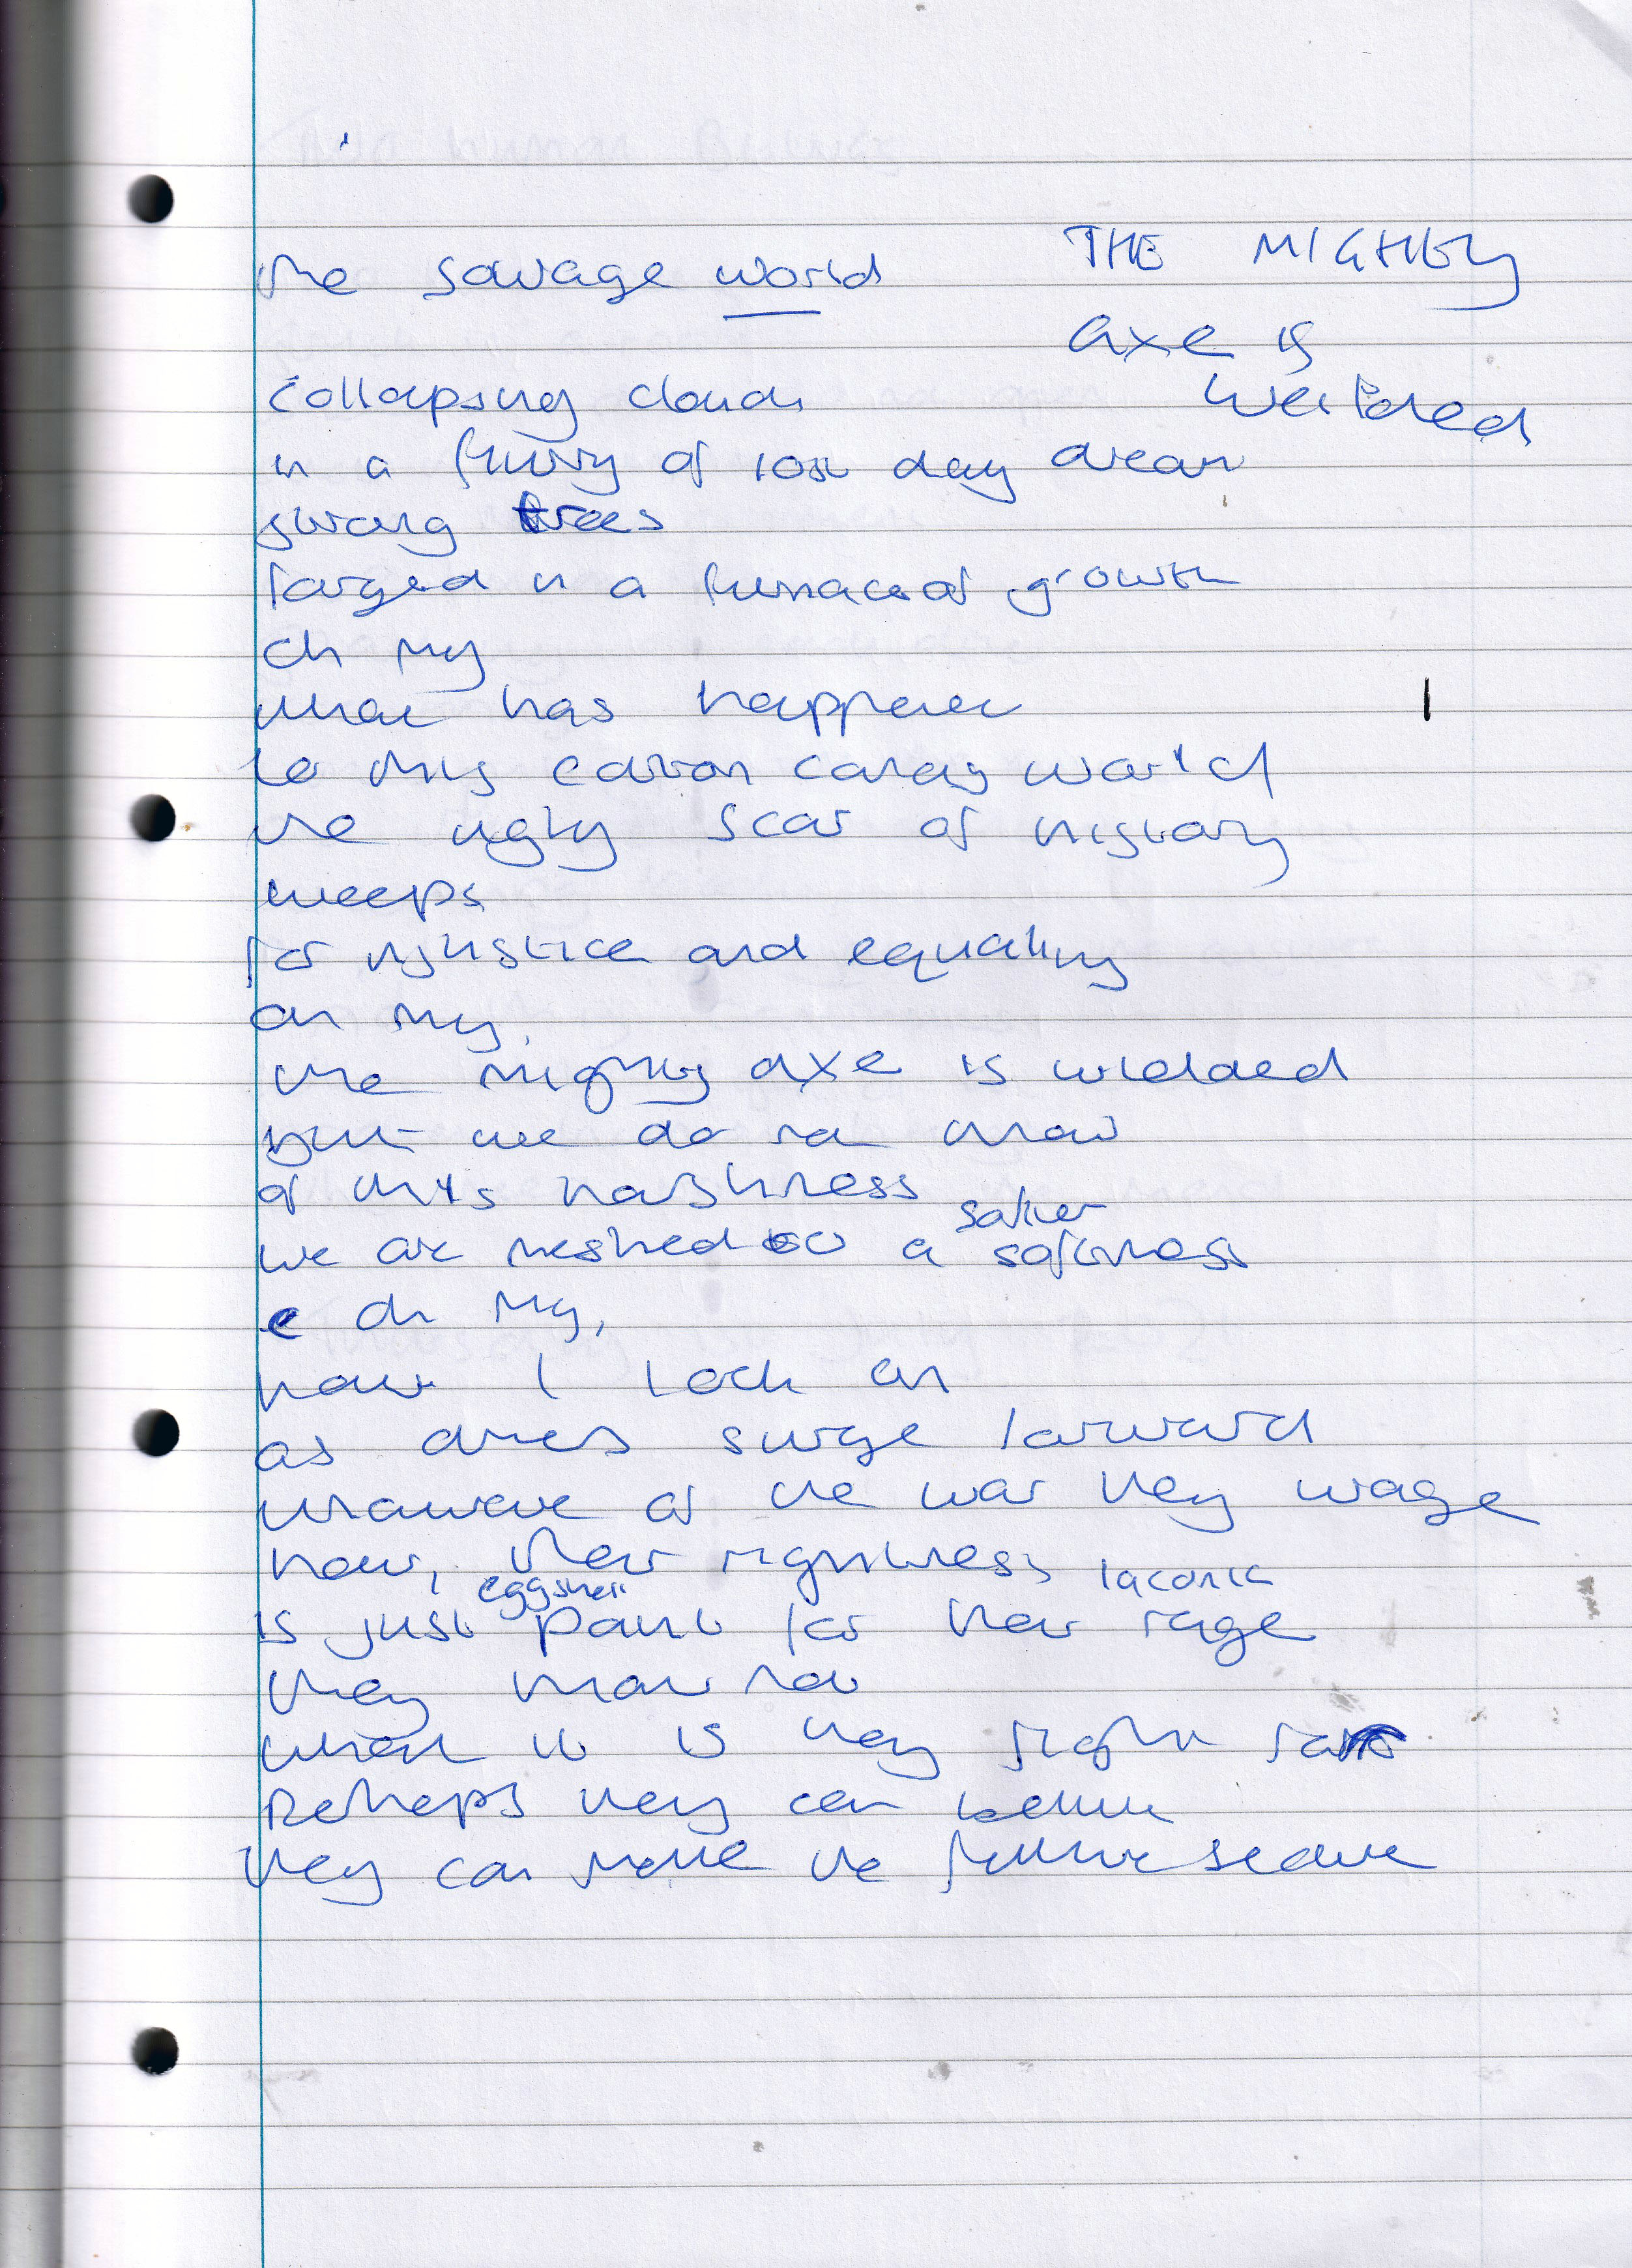 the savage world
THE MIGHTY
axe is
weilded
collapsing clouds
in a flurry of lost day dream
strong trees
forged in a furnace of growth
oh my
what has happened
to this caring world
the ugly scar of history
weeps
for injustice and equality
oh my,
the mighty axe is wielded
but we do not know
of this harshness
softer
we are meshed to a softness
oh my,
now I look on
as others surge forward
unaware of the war they wage
now, their rightness
eggshell laconic
is just paint for their rage
they know not
what it is they fight for
Perhaps they can
they can make the future secure